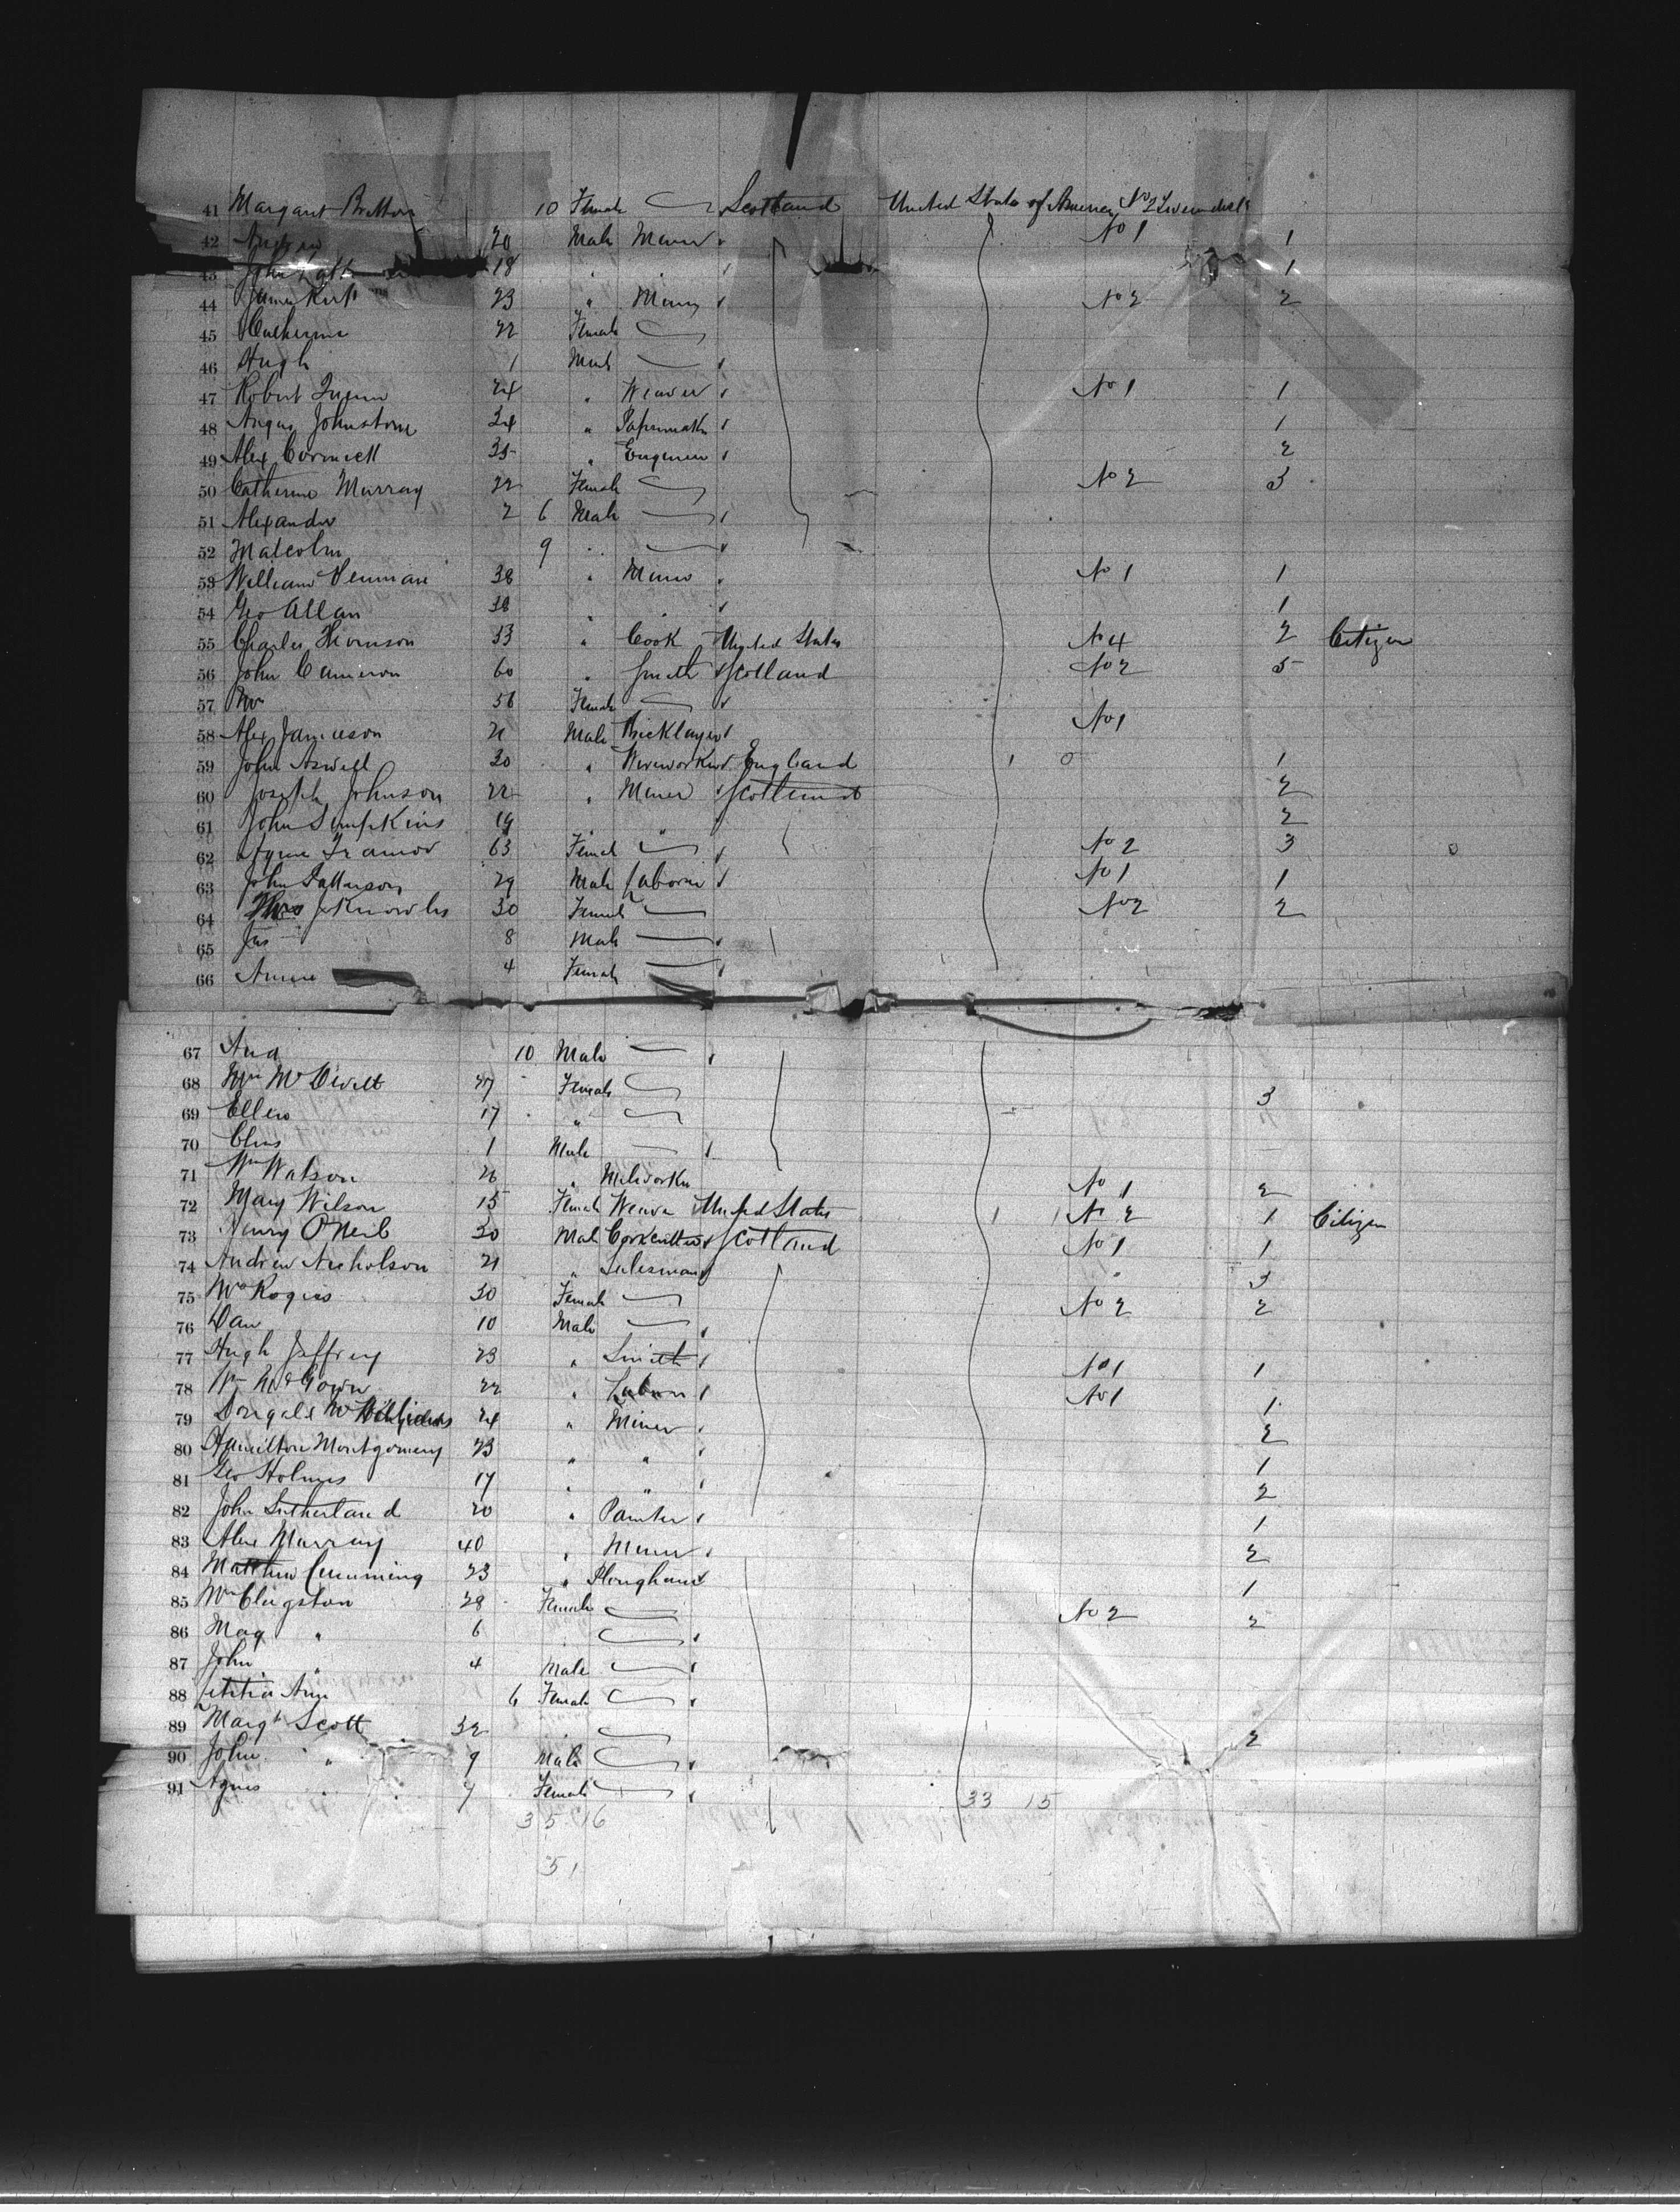 41 Margaret Britton 10 Female Scotland United States of America No 2
42 Andrew 20 Male Miner " No 1 1
43 John 18 " " " 1
44 James Kirk 23 " Miner " No 2 2
45 Catherine 22 Female
46 Hugh 1 Male "
47 Robert 24 " Weaver " No 1 1
48 Angus Johnstone 34 " Papermaker " 1
49 Alex Cormick 35 " Engineer " 2
50 Catherine Murray 22 Female No 2 3
51 Alexander 2 6 Male "
52 Malcolm 9 " "
53 William 38 " Miner " No 1 1
54 Geo Allan 38 " " " 1
55 Charles Thomson 33 " Cook United States No 4 2 Citizen
56 John Cameron 60 " Smith Scotland No 2 5
57 Mrs 56 Female "
58 Alex Jamieson 21 Male Bricklayer " No 1
59 John Aswell 30 " Wireworker England 1 0 1
60 Joseph Johnson 22 " Miner Scotland 2
61 John Simpkins 19 " " " 2
62 Agnes Trainor 63 Female " No 2 3
63 John Patterson 29 Male Laborer " No 1 1
64 Mrs J Knowles 30 Female No 2 2
65 Jas 8 Male "
66 Annie 4 Female "
67 And 10 Male "
68 Mrs McDivitt 47 Female 3
69 Ellen 17 "
70 Chas 1 Male "
71 Wm Watson 26 " Millworker No 1 2
72 Mary Wilson 15 Female Weaver United States 1 1 No 2 1 Citizen
73 Henry O'Neil 30 Male Corkcutter Scotland No 1 1
74 Andrew Nicholson 21 " Salesman " " 3
75 Mrs Rogers 30 Female No 2 2
76 Dan 10 Male "
77 Hugh Jeffrey 23 " Smith " No 1 1
78 Wm McGown 22 " Labor " No 1
79 Dougald 24 " Miner " 1
80 Hamilton Montgomery 23 " " " 2
81 Geo Holmes 17 " " " 1
82 John Sutherland 20 " Painter " 2
83 Alex Murray 40 " Miner " 1
84 Matthew Cumming 23 " Ploughman 2
85 Mrs Clugston 28 Female No 2 1
86 Mag " 6 " " 2
87 John " 4 Male "
88 Letitia Ann 6 Female "
89 Margt Scott 32 " 2
90 John " 9 Male "
91 Agnes " 7 Female "
33 15
35 16
51